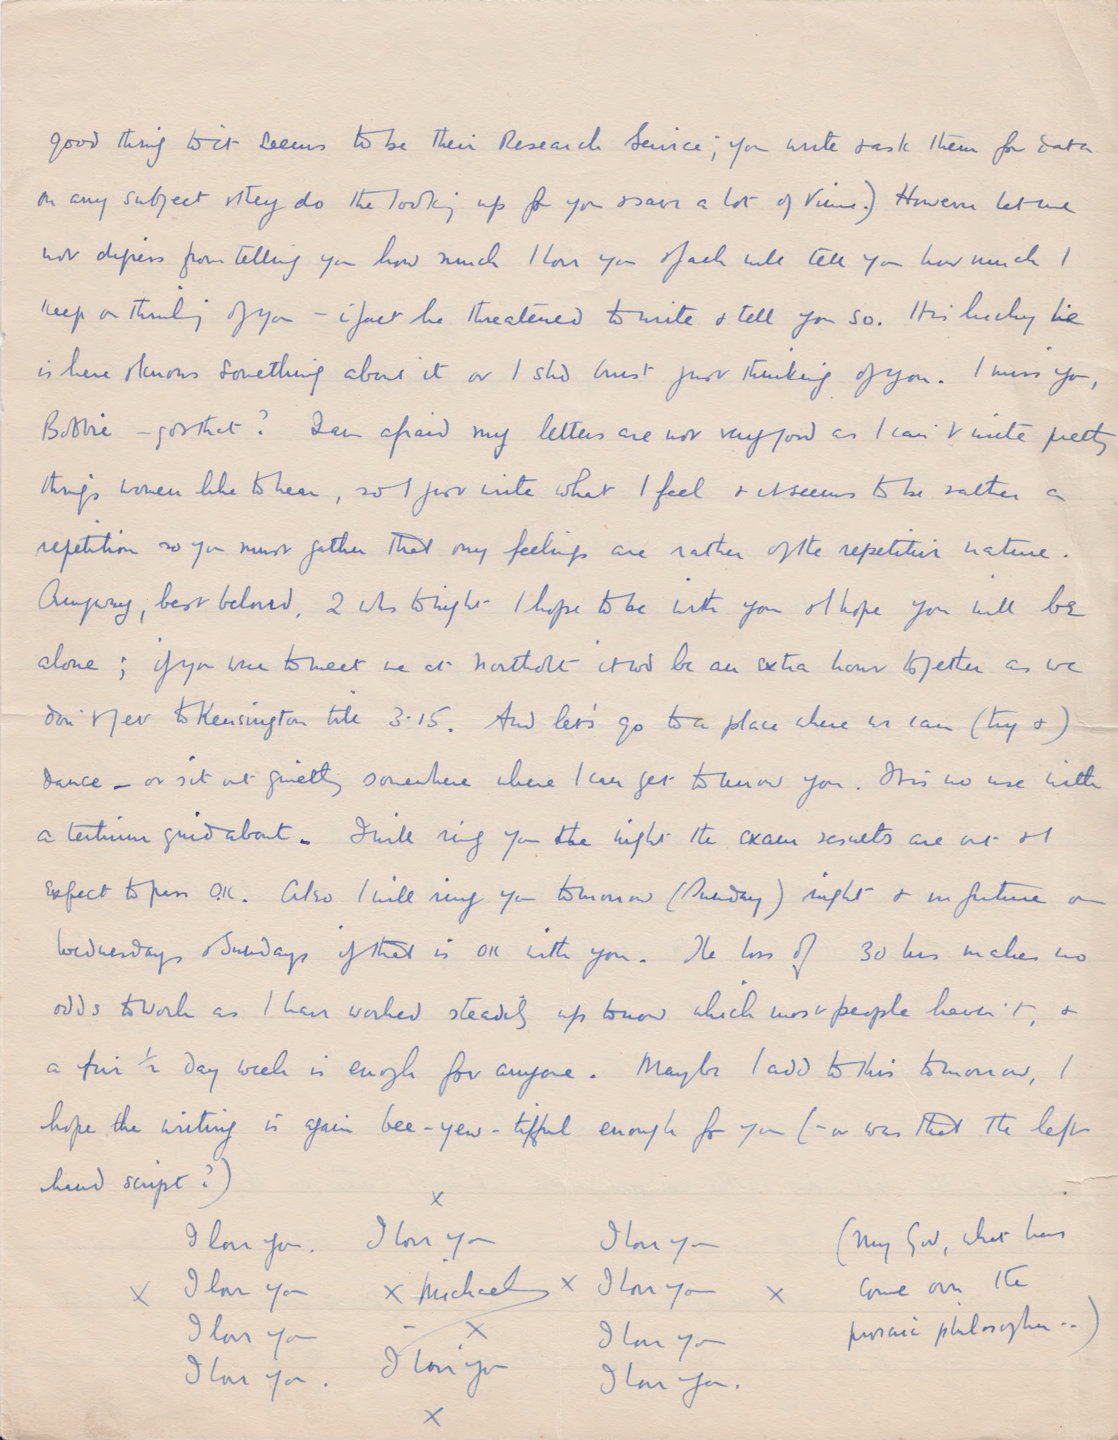 good thing to it seems to be their Research Service; you write & ask them for data
on any subject & they do the looking up for you & save a lot of time.) However let me
not digress from telling you how much I love you & Jack will tell you how much I
keep on thinking of you – in fact he threatened to write & tell you so. It is lucky he
is here & knows something about it or I shd bust just thinking of you. I miss you,
Bobbie – got that? I am afraid my letters are not very good as I can't write pretty
things women like to hear, so I just write what I feel & it seems to be rather a
repetition so you must gather that my feelings are rather of the repetitive nature.
Anyway, best beloved, 2 wks tonight I hope to be with you & I hope you will be
alone; if you were to meet me at Northolt it wd be an extra hour together as we
don't get to Kensington till 3.15. And let's go to a place where we can (try &)
dance – or sit out quietly somewhere where I can get to know you. It is no use with
a tertium quid about. I will ring you the night the exam results are out & I
expect to pass OK. Also I will ring you tomorrow (Sunday) night & in future on
Wednesdays & Sundays if that is OK with you. The loss of 30 hrs makes no
odds to work as I have worked steadily up to now which most people haven't, &
a five ½ day week is enough for anyone. Maybe I add to this tomorrow, I
hope the writing is again bee-yew-tifful enough for you (– or was that the left
hand script?)
x
I love you. I love you I love you (My God, what has
x I love you x Michael x I love you x come over the
I love you x I love you prosaic philosopher --)
I love you. I love you I love you.
x